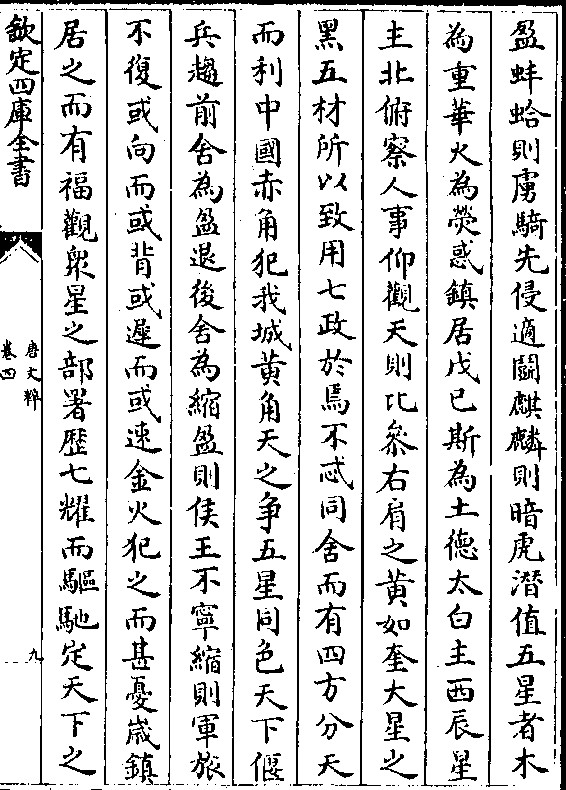 盈蚌蛤則虜騎先侵適鬭麒麟則暗虎潛值五星者木
為重華火為熒惑鎮居戊巳斯為土德太白主西辰星
主北俯察人事仰觀天則比參右肩之黃如奎大星之
黑五材所以致用七政於焉不忒同舍而有四方分天
而利中國赤角犯我城黃角天之爭五星同色天下偃
兵趨前舍為盈退後舍為縮盈則侯王不寧縮則軍旅
不復或向而或背或遲而或速金火犯之而甚憂嵗鎮
居之而有福觀衆星之部署歴七耀而驅馳定天下之
欽定四庫全書
唐文粹
卷四
九